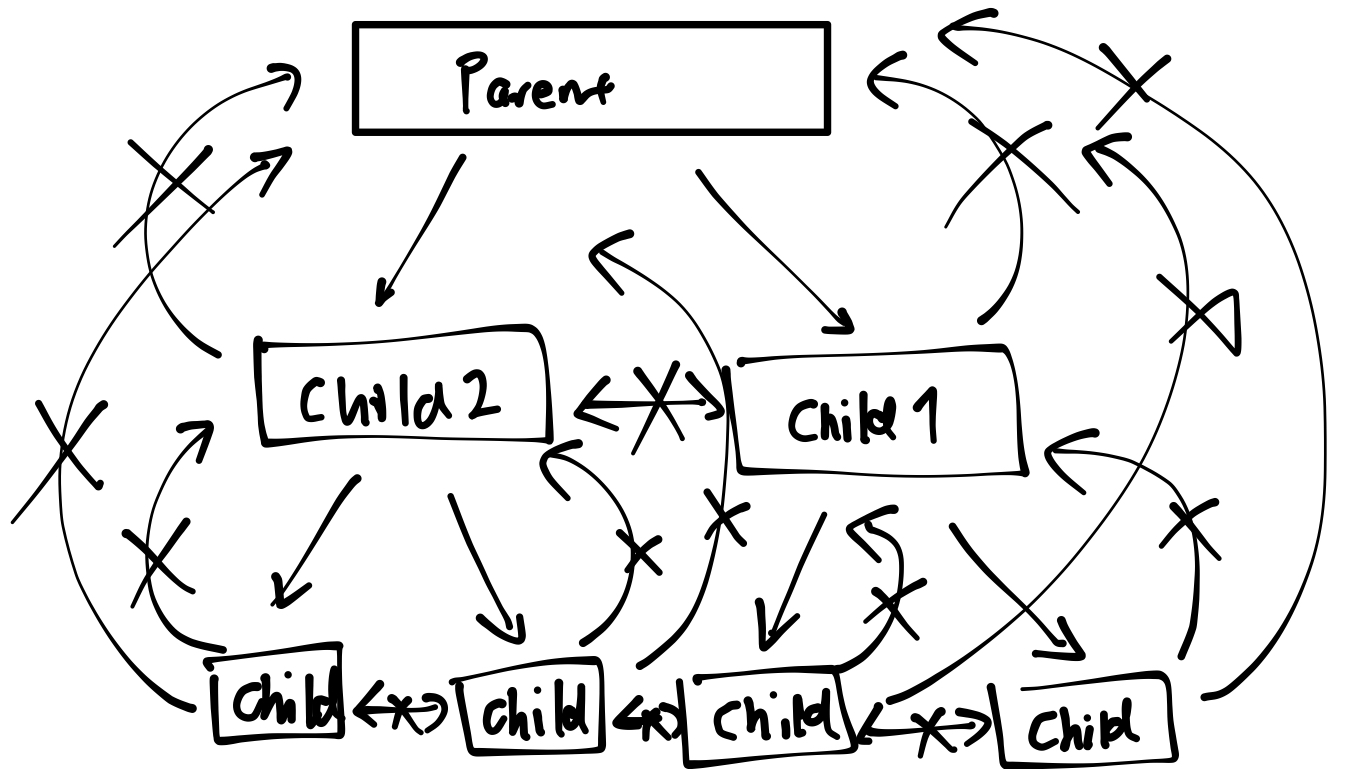 Parent
Child 2
Child 1
Child
Child
Child
Child